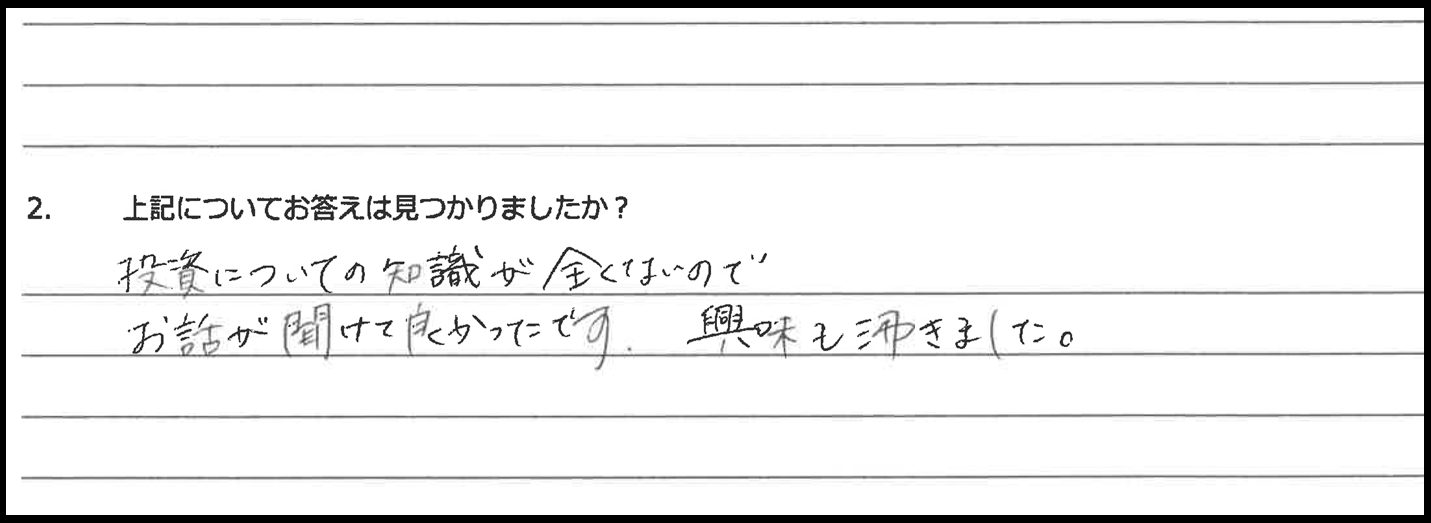 2. 上記についてお答えは見つかりましたか？
投資についての知識が全くないので
お話が聞けて良かったです. 興味も沸きました。